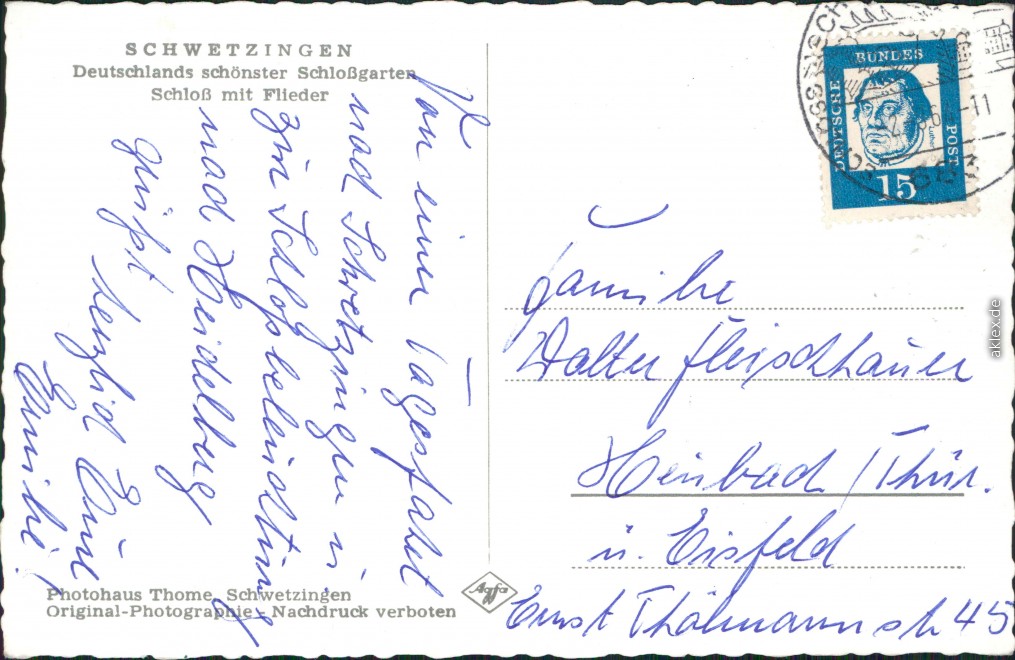 SCHWETZINGEN
Deutschlands schönster Schloßgarten
Schloß mit Flieder
Von einer Tagesfahrt
nach Schwetzingen u.
zur Schloßbeleuchtung
nach Heidelberg
grüßt herzlich Eure
Emilie!
Photohaus Thome, Schwetzingen
Original-Photographie - Nachdruck verboten
Agfa
DEUTSCHE BUNDES POST
Luther
15
Familie
Walter Fleischhauer
Heubach / Thür.
ü. Eisfeld
Ernst Thälmannstr 45
aklex.de